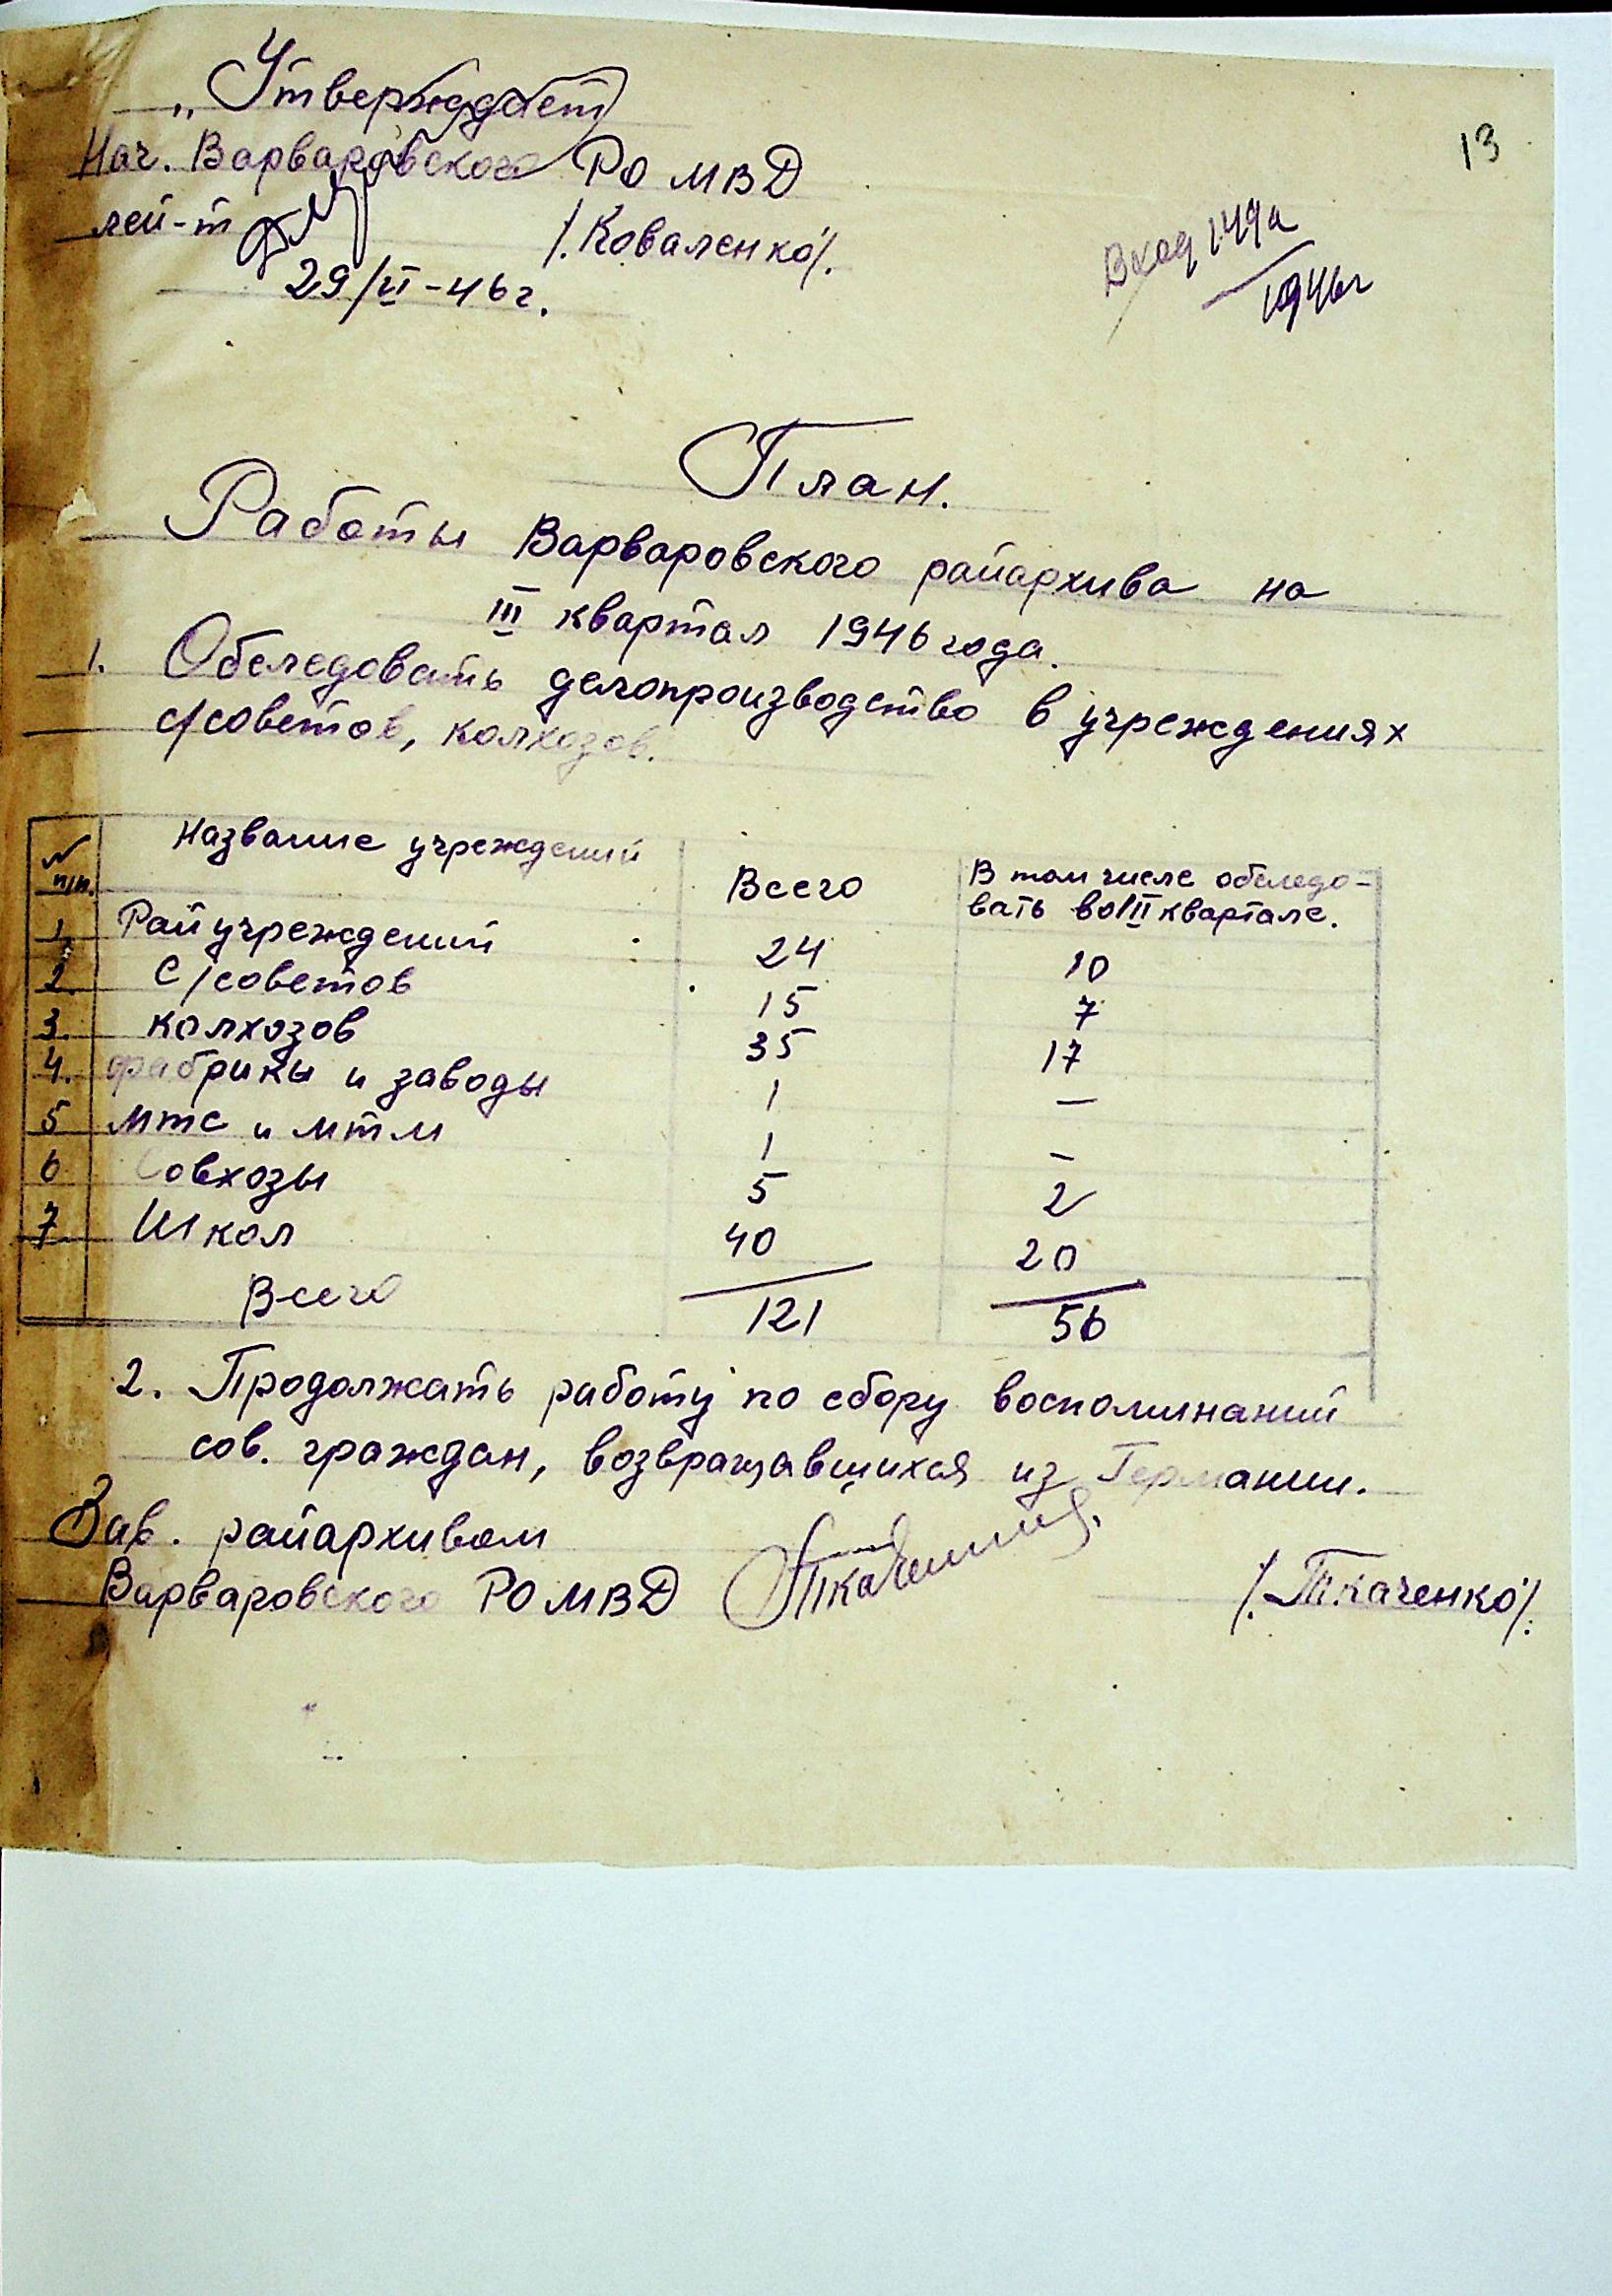 „Утверждает
13
Нач. Варваровского РО МВД
лей-т /.Коваленко/.
29/VI-46г.
Вход 149а
1946г
План.
Работы Варваровского райархива на
III квартал 1946 года.
1. Обследовать делопроизводство в учреждениях
с/советов, колхозов.
№ п/п. Название учреждений Всего В том числе обследо-
вать во III квартале.
1. Райучреждений 24 10
2. С/советов 15 7
3. Колхозов 35 17
4. фабрики и заводы 1 —
5 МТС и МТМ 1 —
6 Совхозы 5 2
7 Школ 40 20
Всего 121 56
2. Продолжать работу по сбору воспоминаний
сов. граждан, возвращавшихся из Германии.
Зав. райархивом
Варваровского РО МВД Ткаченко /.Ткаченко/.